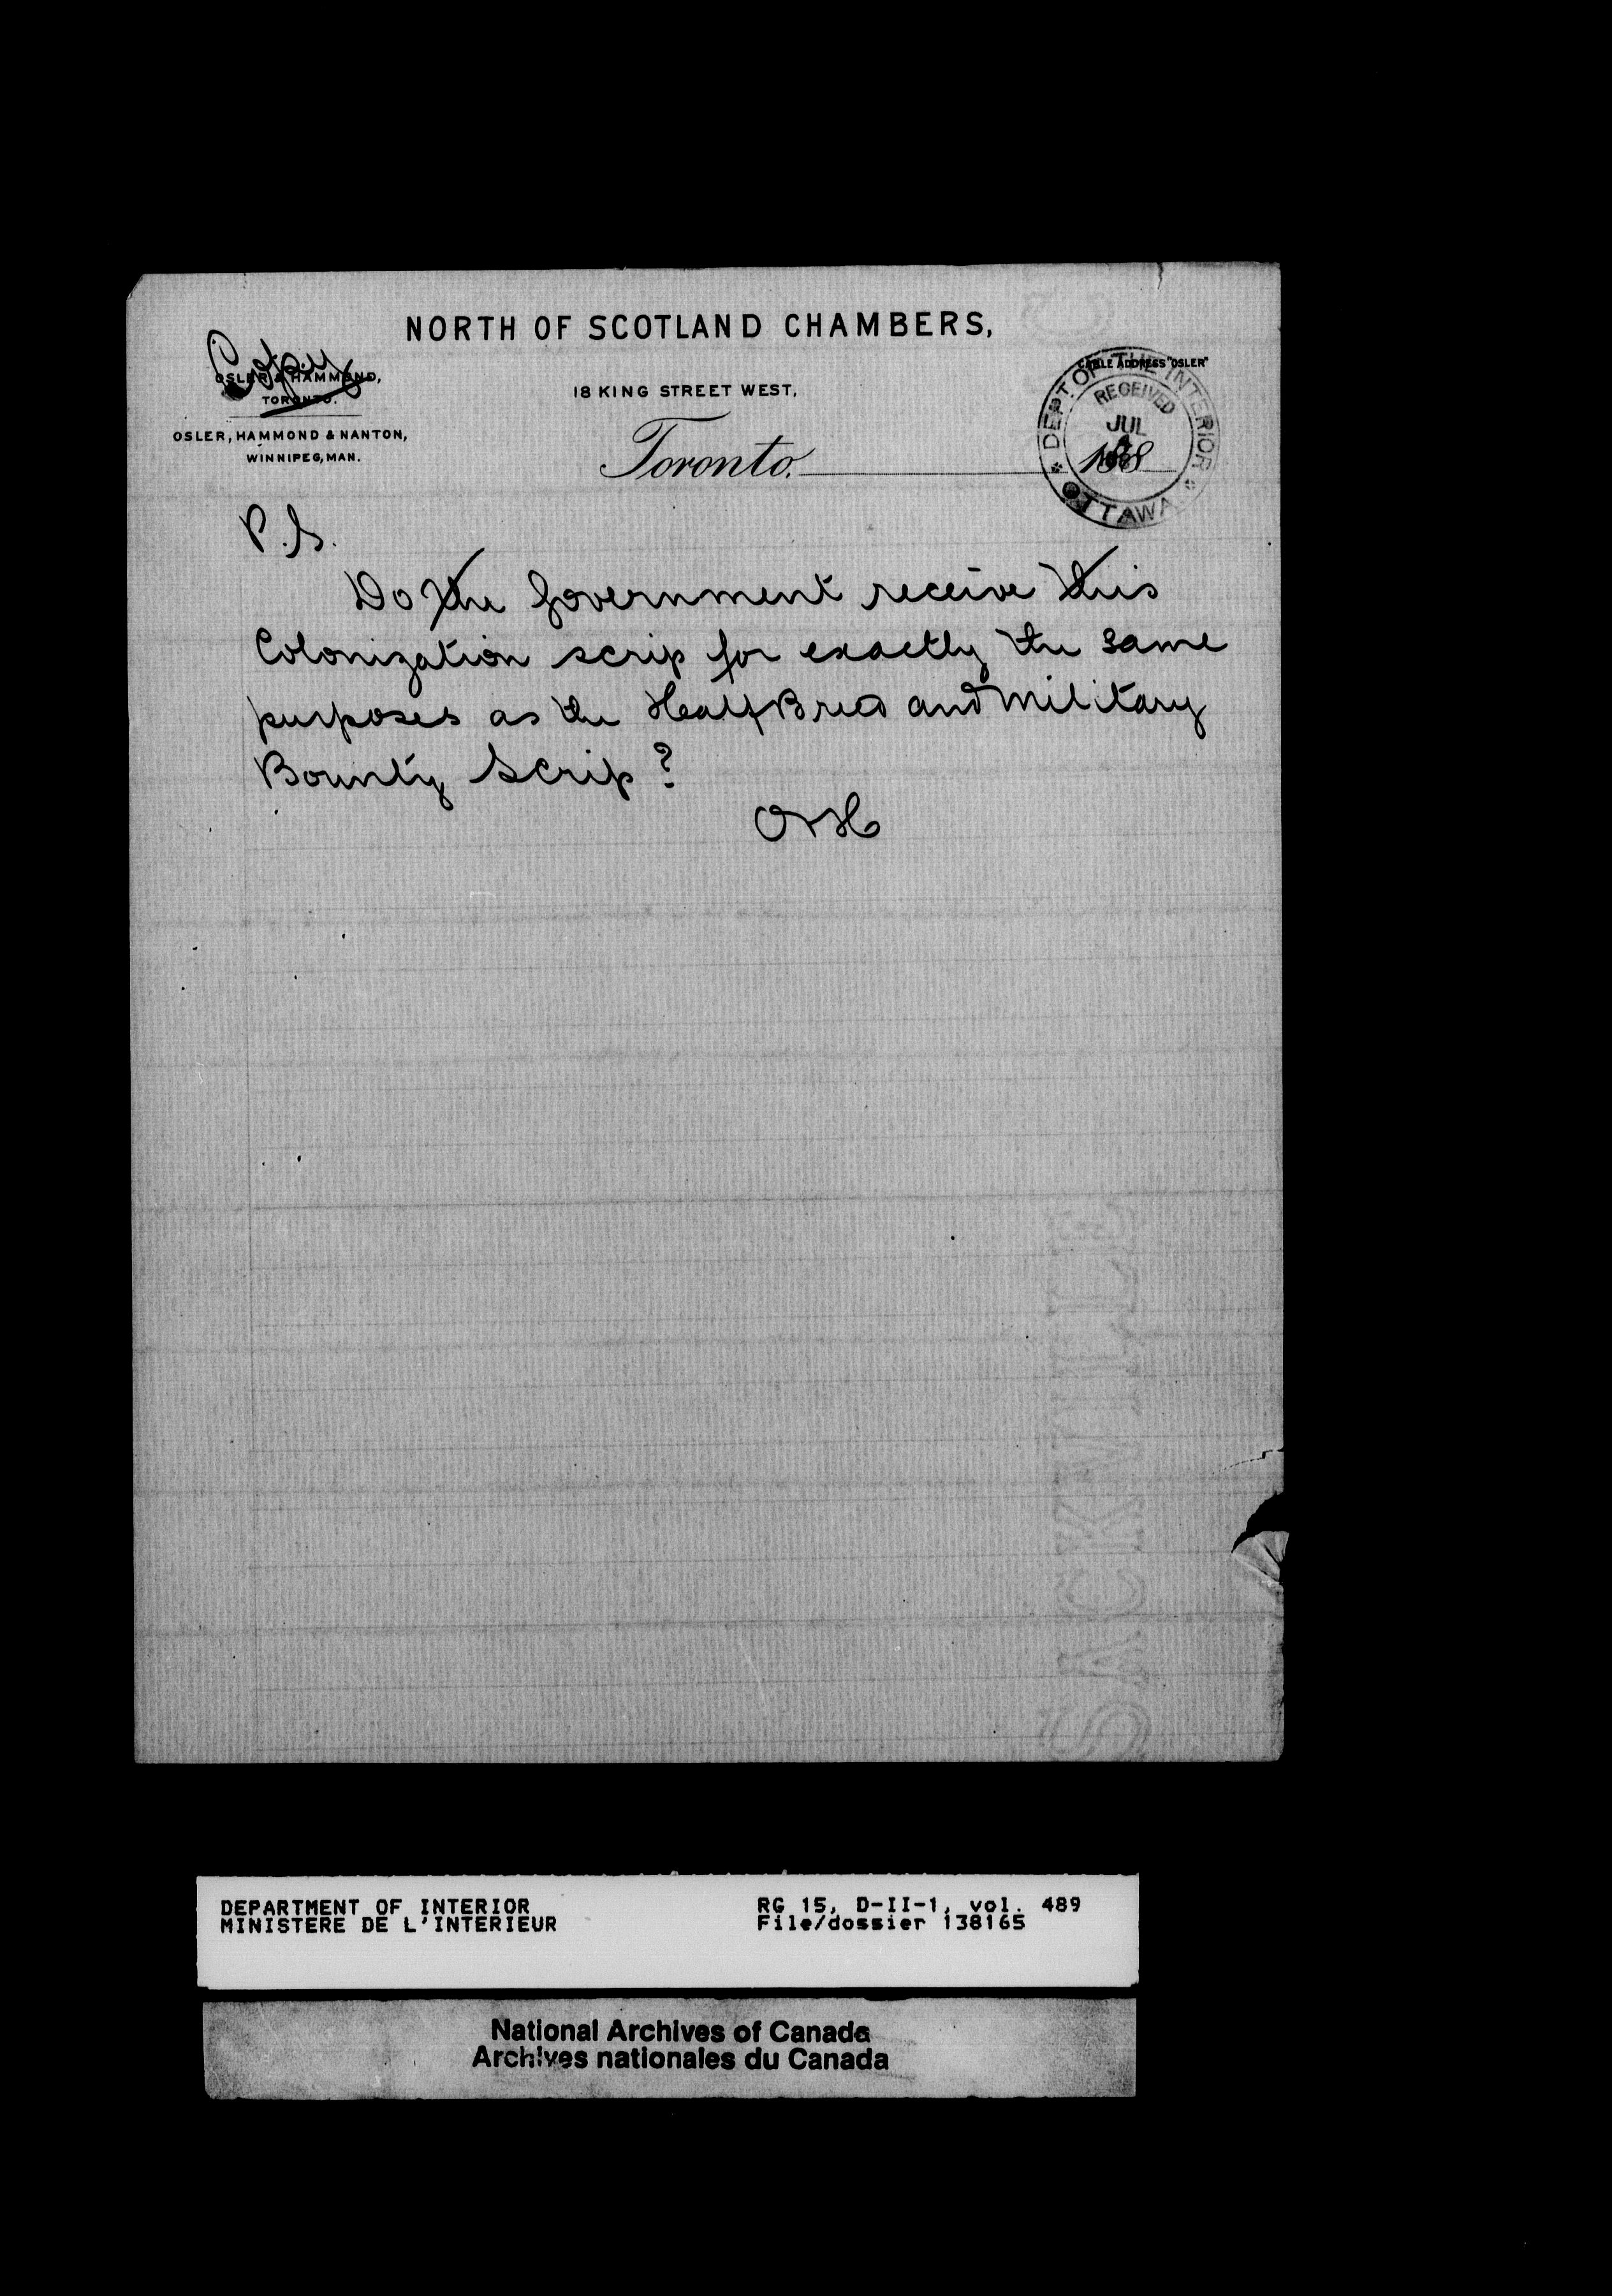 NORTH OF SCOTLAND CHAMBERS,
Copy
OSLER & HAMMOND,
TORONTO.
OSLER, HAMMOND & NANTON,
WINNIPEG, MAN.
18 KING STREET WEST,
CABLE ADDRESS "OSLER"
DEPT. OF THE INTERIOR
RECEIVED
JUL
OTTAWA
Toronto, 188
P.S.
Do the Government receive this
Colonization scrip for exactly the same
purposes as the Half Breed and Military
Bounty Scrip?
O & H
SACKVILLE
DEPARTMENT OF INTERIOR
MINISTERE DE L'INTERIEUR
RG 15, D-II-1, vol. 489
File/dossier 138165
National Archives of Canada
Archives nationales du Canada